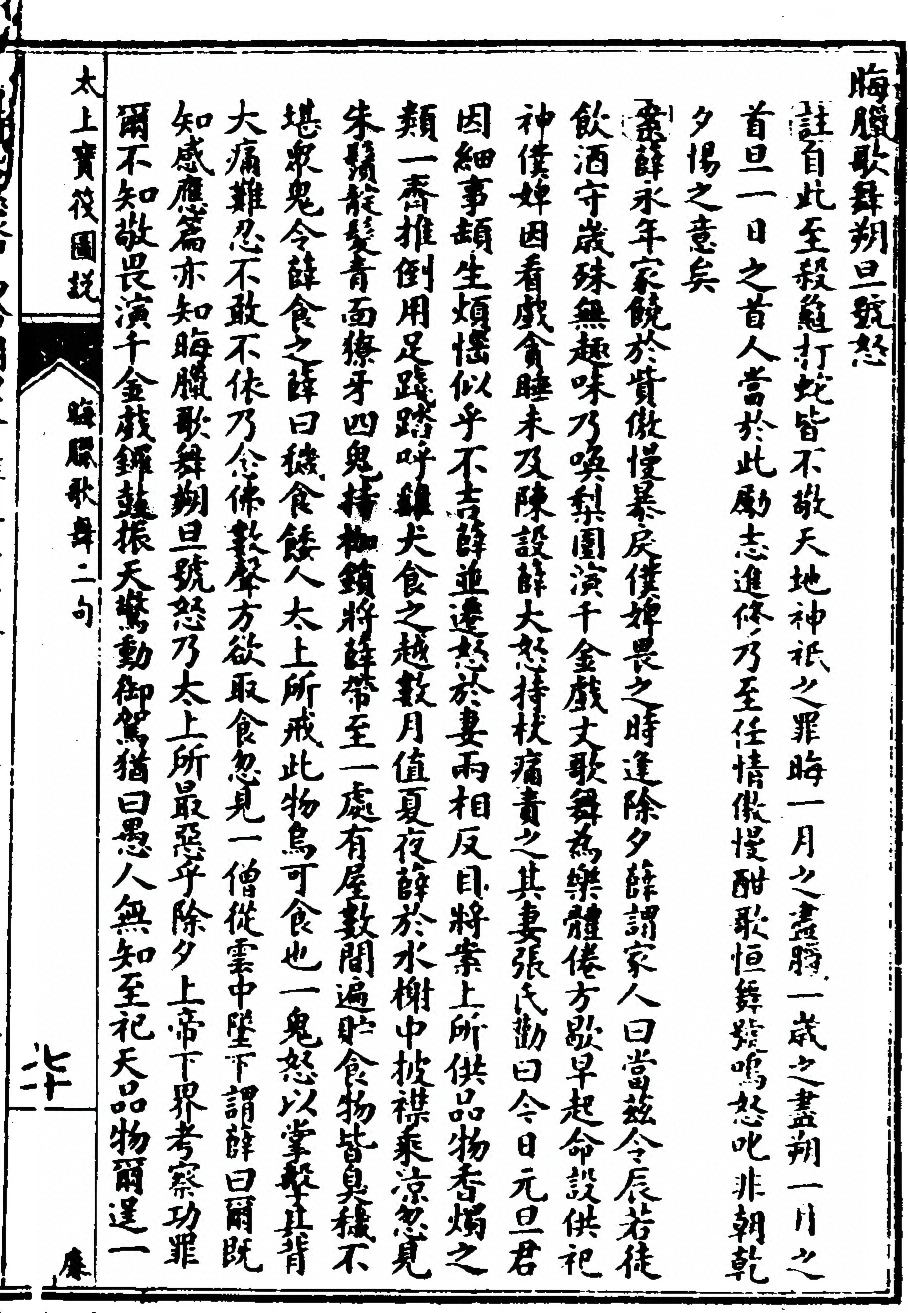 晦臘歌舞朔旦號怒
註自此至殺龜打蛇皆不敬天地神祇之罪晦一月之盡臘一歲之盡朔一月之
首旦一日之首人當於此勵志進修乃至任情傲慢酣歌恒舞號鳴怒叱非朝乾
夕惕之意矣
案薛永年家饒於貲傲慢暴戾僕婢畏之時逢除夕薛謂家人曰當茲令辰若徒
飲酒守歲殊無趣味乃喚梨園演千金戲文歌舞為樂體倦方歇早起命設供祀
神僕婢因看戲貪睡未及陳設薛大怒持杖痛責之其妻張氏勸曰今日元旦君
因細事頓生煩惱似乎不吉薛並遷怒於妻兩相反目將案上所供品物香燭之
類一齊推倒用足踐踏呼雞犬食之越數月值夏夜薛於水榭中披襟乘涼忽見
朱鬚髭髮青面獠牙四鬼持枷鎖將薛帶至一處有屋數間遍貯食物皆臭穢不
堪眾鬼令薛食之薛曰穢食餧人太上所戒此物烏可食也一鬼怒以掌擊其背
大痛難忍不敢不依乃念佛數聲方欲取食忽見一僧從雲中墜下謂薛曰爾既
知感應篇亦知晦臘歌舞朔旦號怒乃太上所最惡乎除夕上帝下界考察功罪
爾不知敬畏演千金戲鑼鼓振天驚動御駕猶曰愚人無知至祀天品物爾逞一
太上寶筏圖說
晦臘歌舞二句
七十
廉